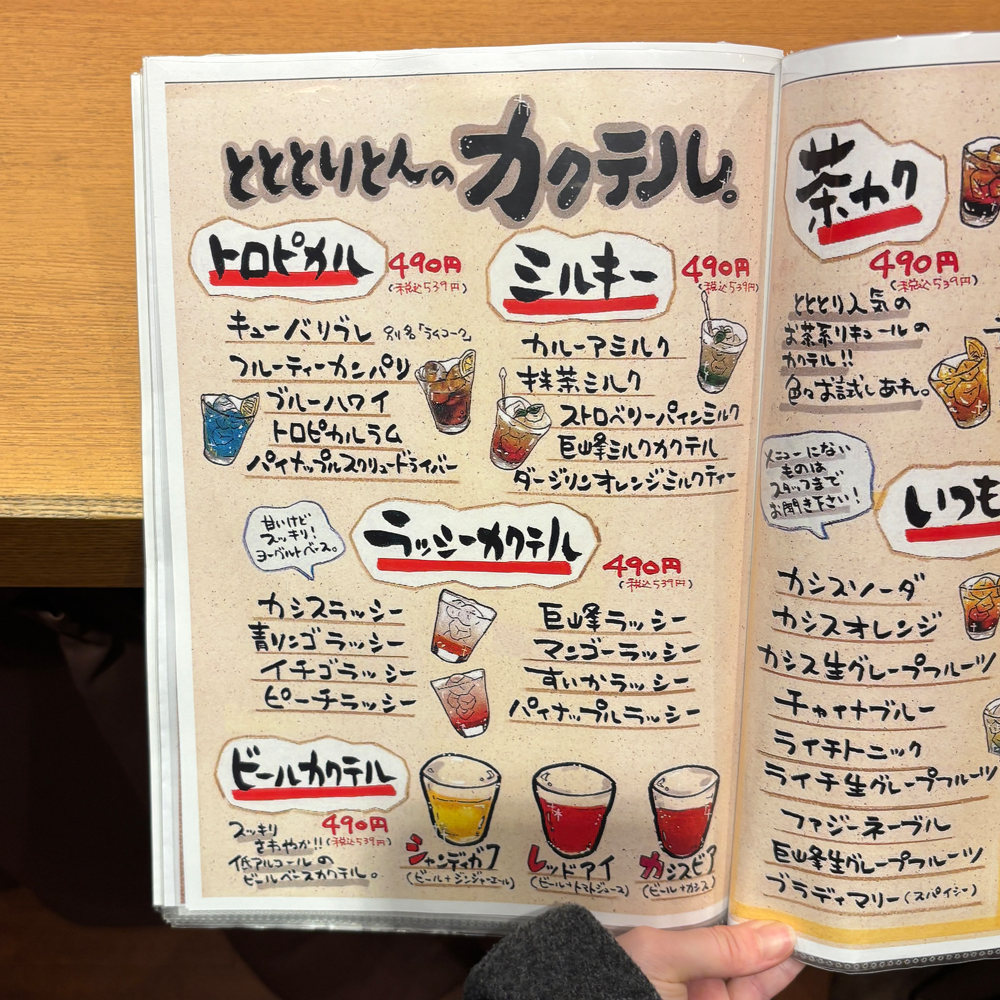 とととりとんのカクテル。
トロピカル
490円
(税込539円)
キューバリブレ 別名「ライコーク」
フルーティーカンパリ
ブルーハワイ
トロピカルラム
パイナップルスクリュードライバー
ミルキー
490円
(税込539円)
カルーアミルク
抹茶ミルク
ストロベリーパインミルク
巨峰ミルクカクテル
ダージリンオレンジミルクティー
甘いけど
スッキリ!
ヨーグルトベース。
ラッシーカクテル
490円
(税込539円)
カシスラッシー
青リンゴラッシー
イチゴラッシー
ピーチラッシー
巨峰ラッシー
マンゴーラッシー
すいかラッシー
パイナップルラッシー
ビールカクテル
490円
(税込539円)
スッキリ
さわやか!!
低アルコールの
ビールベースカクテル。
シャンディガフ
(ビール+ジンジャーエール)
レッドアイ
(ビール+トマトジュース)
カシスビア
(ビール+カシス)
茶カク
490円
(税込539円)
とととり人気の
お茶系リキュールの
カクテル!!
色々お試しあれ。
メニューにない
ものは
スタッフまで
お聞き下さい!
いつも
カシスソーダ
カシスオレンジ
カシス生グレープフルーツ
チャイナブルー
ライチトニック
ライチ生グレープフルーツ
ファジーネーブル
巨峰生グレープフルーツ
ブラディマリー(スパイシー)